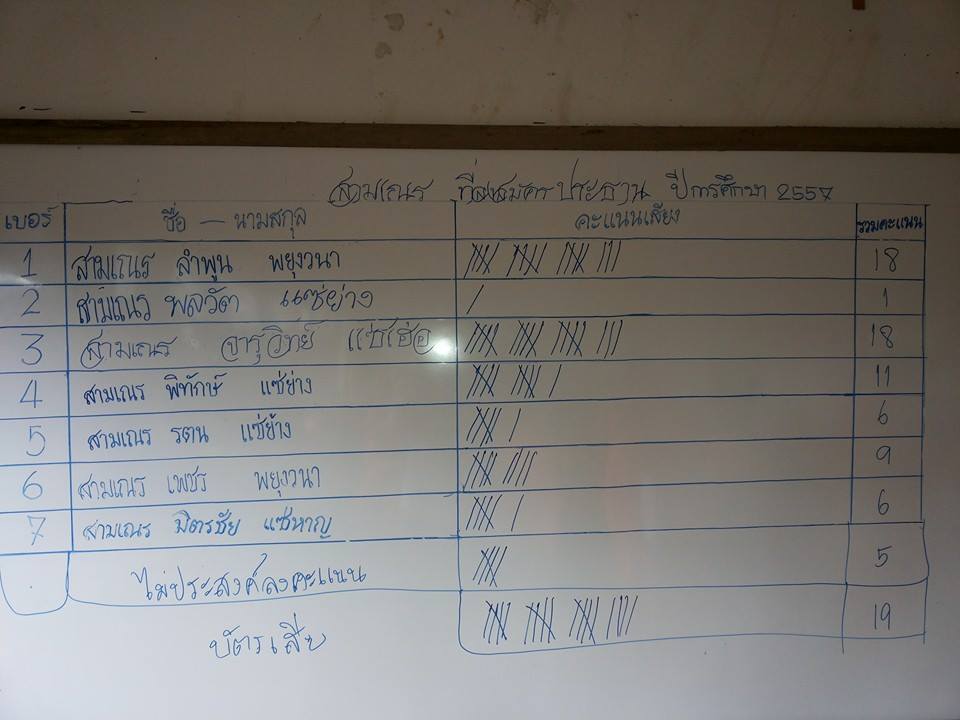 สามเณร ที่ลงสมัครประธาน ปีการศึกษา 2557
เบอร์ ชื่อ - นามสกุล คะแนนเสียง รวมคะแนน
1 สามเณร ลำพูน พยุงวนา 18
2 สามเณร พลวัต แซ่ย่าง 1
3 สามเณร จารุวิทย์ แซ่เฮ่อ 18
4 สามเณร พิทักษ์ แซ่ย่าง 11
5 สามเณร รตน แซ่ย้าง 6
6 สามเณร เพชร พยุงวนา 9
7 สามเณร มิตรชัย แซ่หาญ 6
ไม่ประสงค์ลงคะแนน 5
บัตรเสีย 19